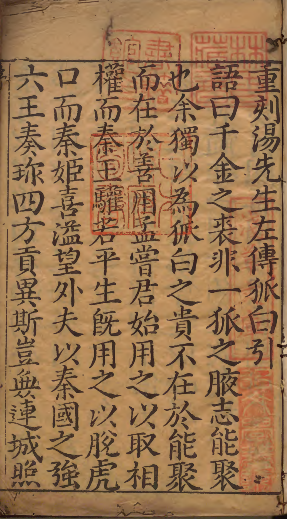 重刻湯先生左傳狐白引
語曰千金之裘非一狐之腋志能聚
也余獨以為狐白之貴不在於能聚
而在於善用孟嘗君始用之以取相
權而秦王驩若平生既用之以脫虎
口而秦姬喜溢望外夫以秦國之強
六王奏珎四方貢異斯豈無連城照